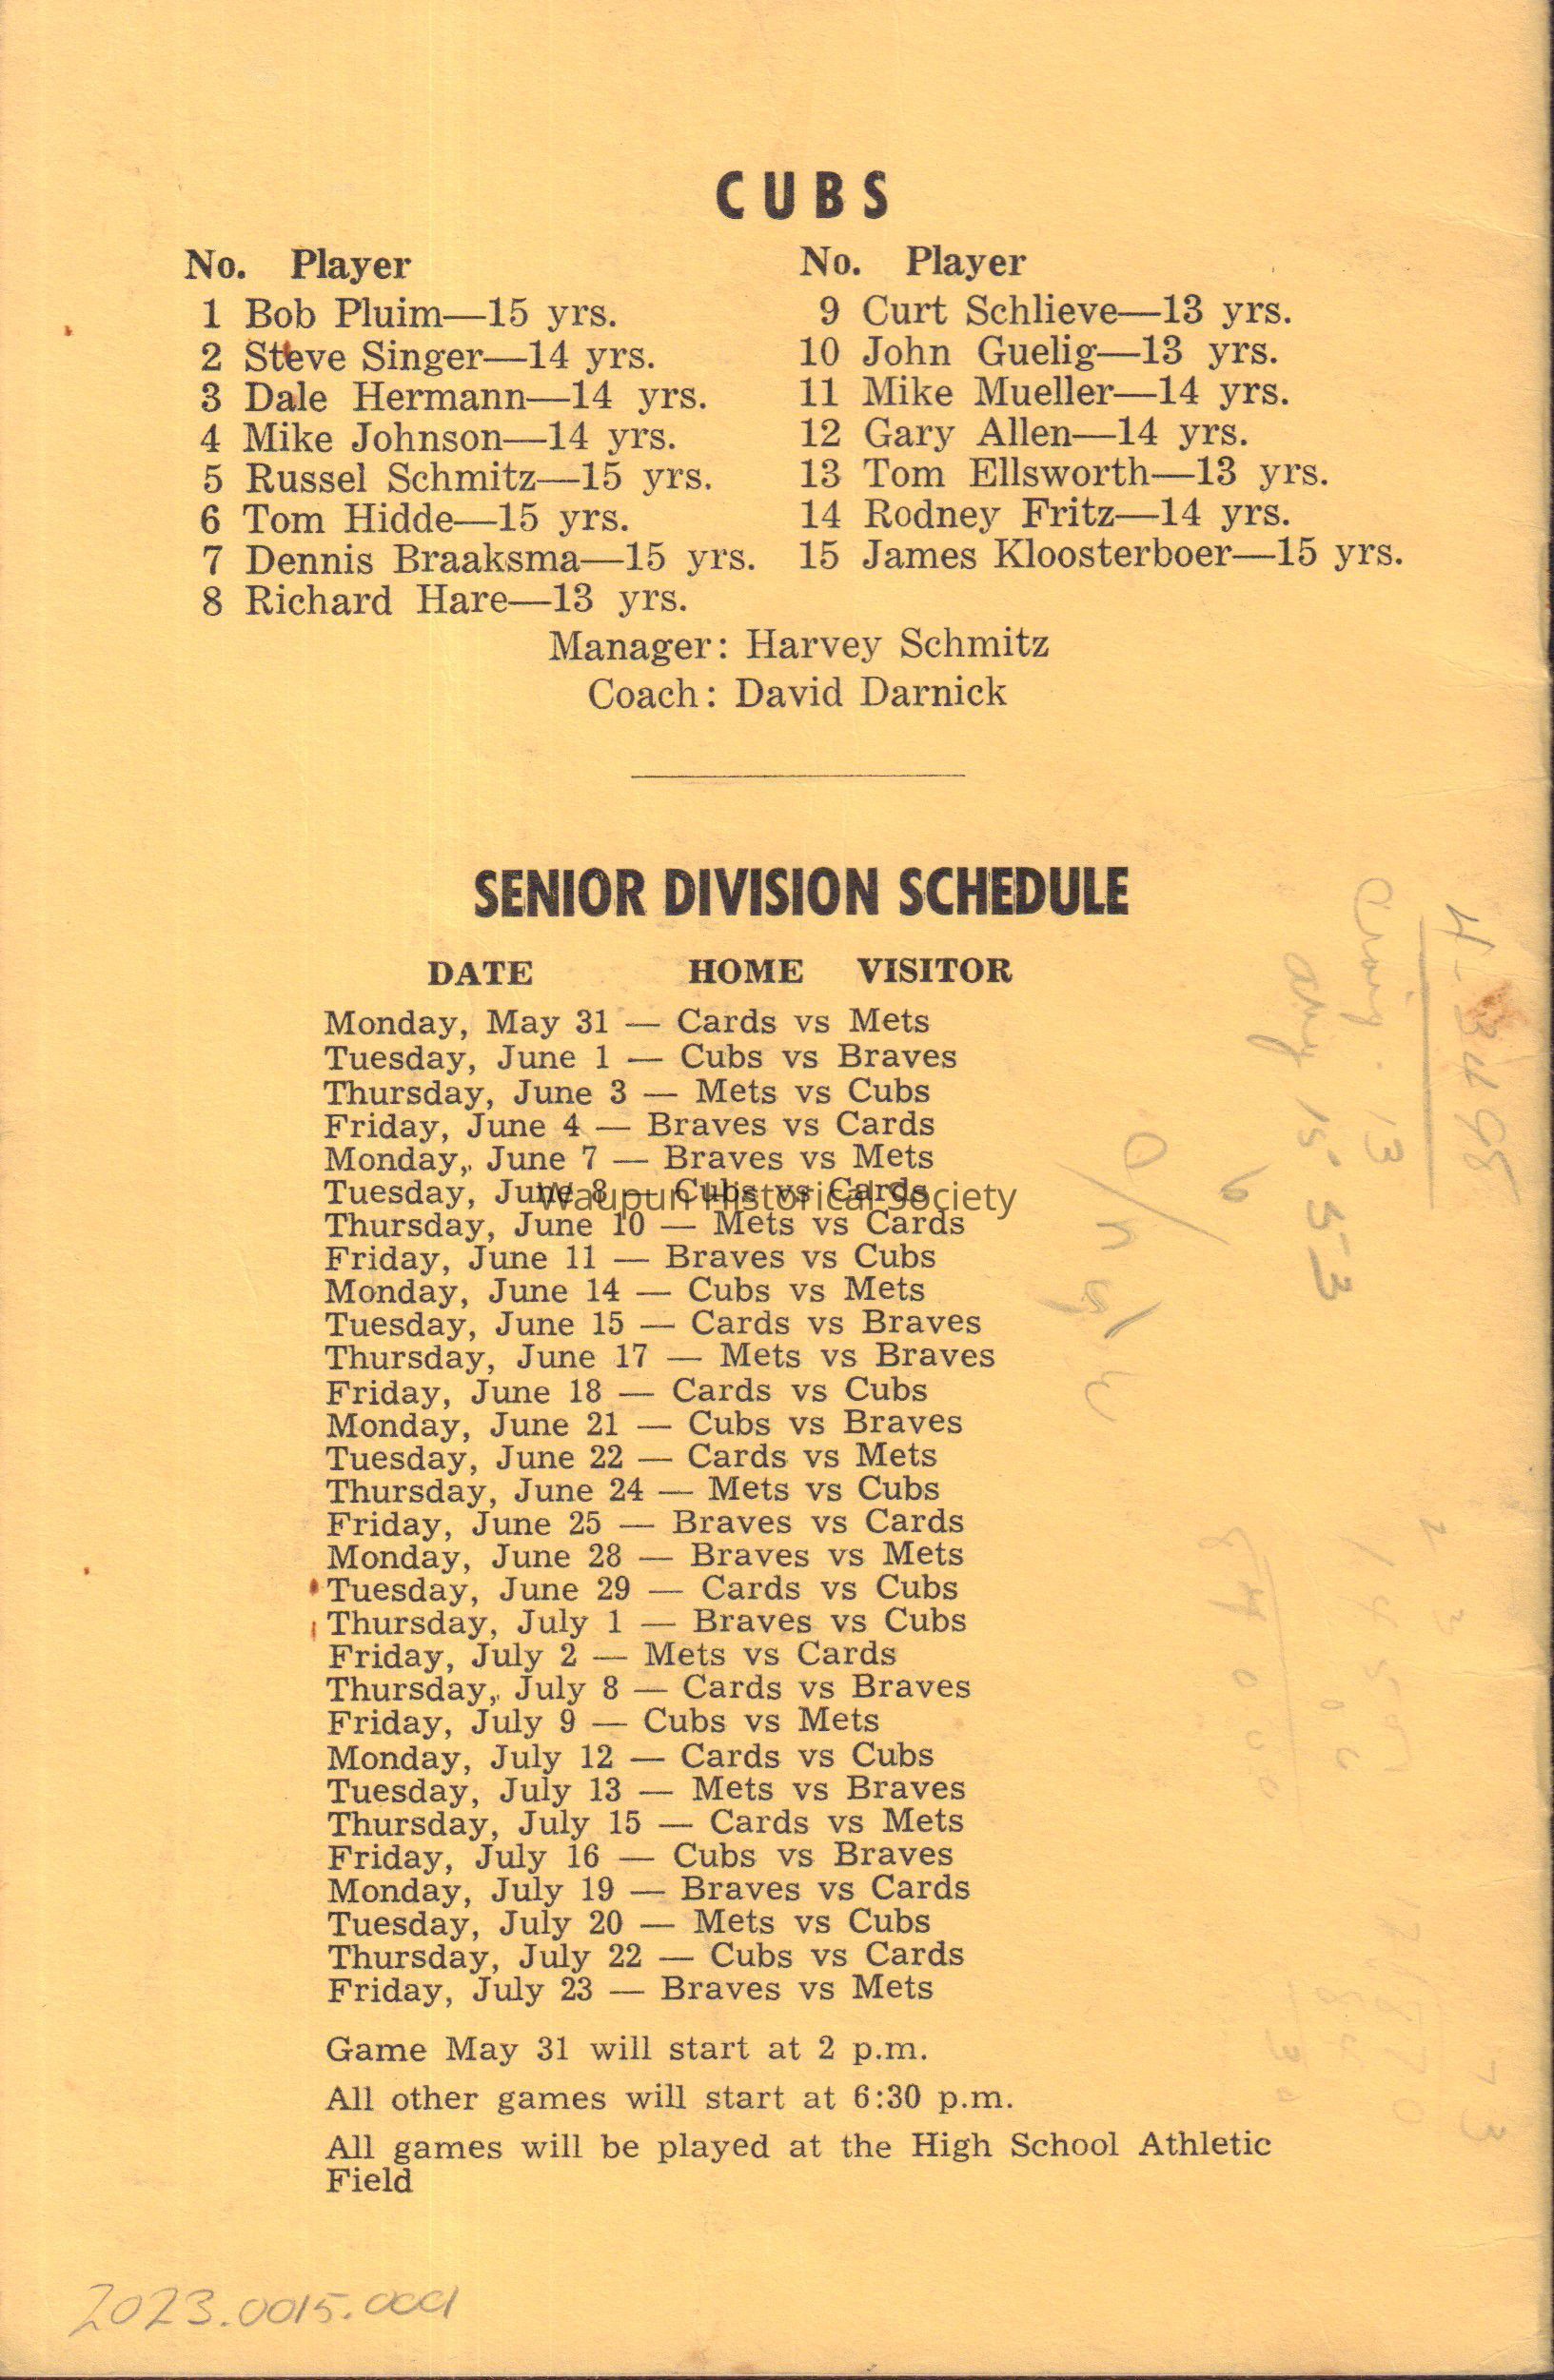 CUBS
No. Player
1 Bob Pluim—15 yrs.
2 Steve Singer—14 yrs.
3 Dale Hermann—14 yrs.
4 Mike Johnson—14 yrs.
5 Russel Schmitz—15 yrs.
6 Tom Hidde—15 yrs.
7 Dennis Braaksma—15 yrs.
8 Richard Hare—13 yrs.
No. Player
9 Curt Schlieve—13 yrs.
10 John Guelig—13 yrs.
11 Mike Mueller—14 yrs.
12 Gary Allen—14 yrs.
13 Tom Ellsworth—13 yrs.
14 Rodney Fritz—14 yrs.
15 James Kloosterboer—15 yrs.
Manager: Harvey Schmitz
Coach: David Darnick
SENIOR DIVISION SCHEDULE
DATE HOME VISITOR
Monday, May 31 — Cards vs Mets
Tuesday, June 1 — Cubs vs Braves
Thursday, June 3 — Mets vs Cubs
Friday, June 4 — Braves vs Cards
Monday, June 7 — Braves vs Mets
Tuesday, June 8 — Cubs vs Cards
Waupun Historical Society
Thursday, June 10 — Mets vs Cards
Friday, June 11 — Braves vs Cubs
Monday, June 14 — Cubs vs Mets
Tuesday, June 15 — Cards vs Braves
Thursday, June 17 — Mets vs Braves
Friday, June 18 — Cards vs Cubs
Monday, June 21 — Cubs vs Braves
Tuesday, June 22 — Cards vs Mets
Thursday, June 24 — Mets vs Cubs
Friday, June 25 — Braves vs Cards
Monday, June 28 — Braves vs Mets
Tuesday, June 29 — Cards vs Cubs
Thursday, July 1 — Braves vs Cubs
Friday, July 2 — Mets vs Cards
Thursday, July 8 — Cards vs Braves
Friday, July 9 — Cubs vs Mets
Monday, July 12 — Cards vs Cubs
Tuesday, July 13 — Mets vs Braves
Thursday, July 15 — Cards vs Mets
Friday, July 16 — Cubs vs Braves
Monday, July 19 — Braves vs Cards
Tuesday, July 20 — Mets vs Cubs
Thursday, July 22 — Cubs vs Cards
Friday, July 23 — Braves vs Mets
Game May 31 will start at 2 p.m.
All other games will start at 6:30 p.m.
All games will be played at the High School Athletic
Field